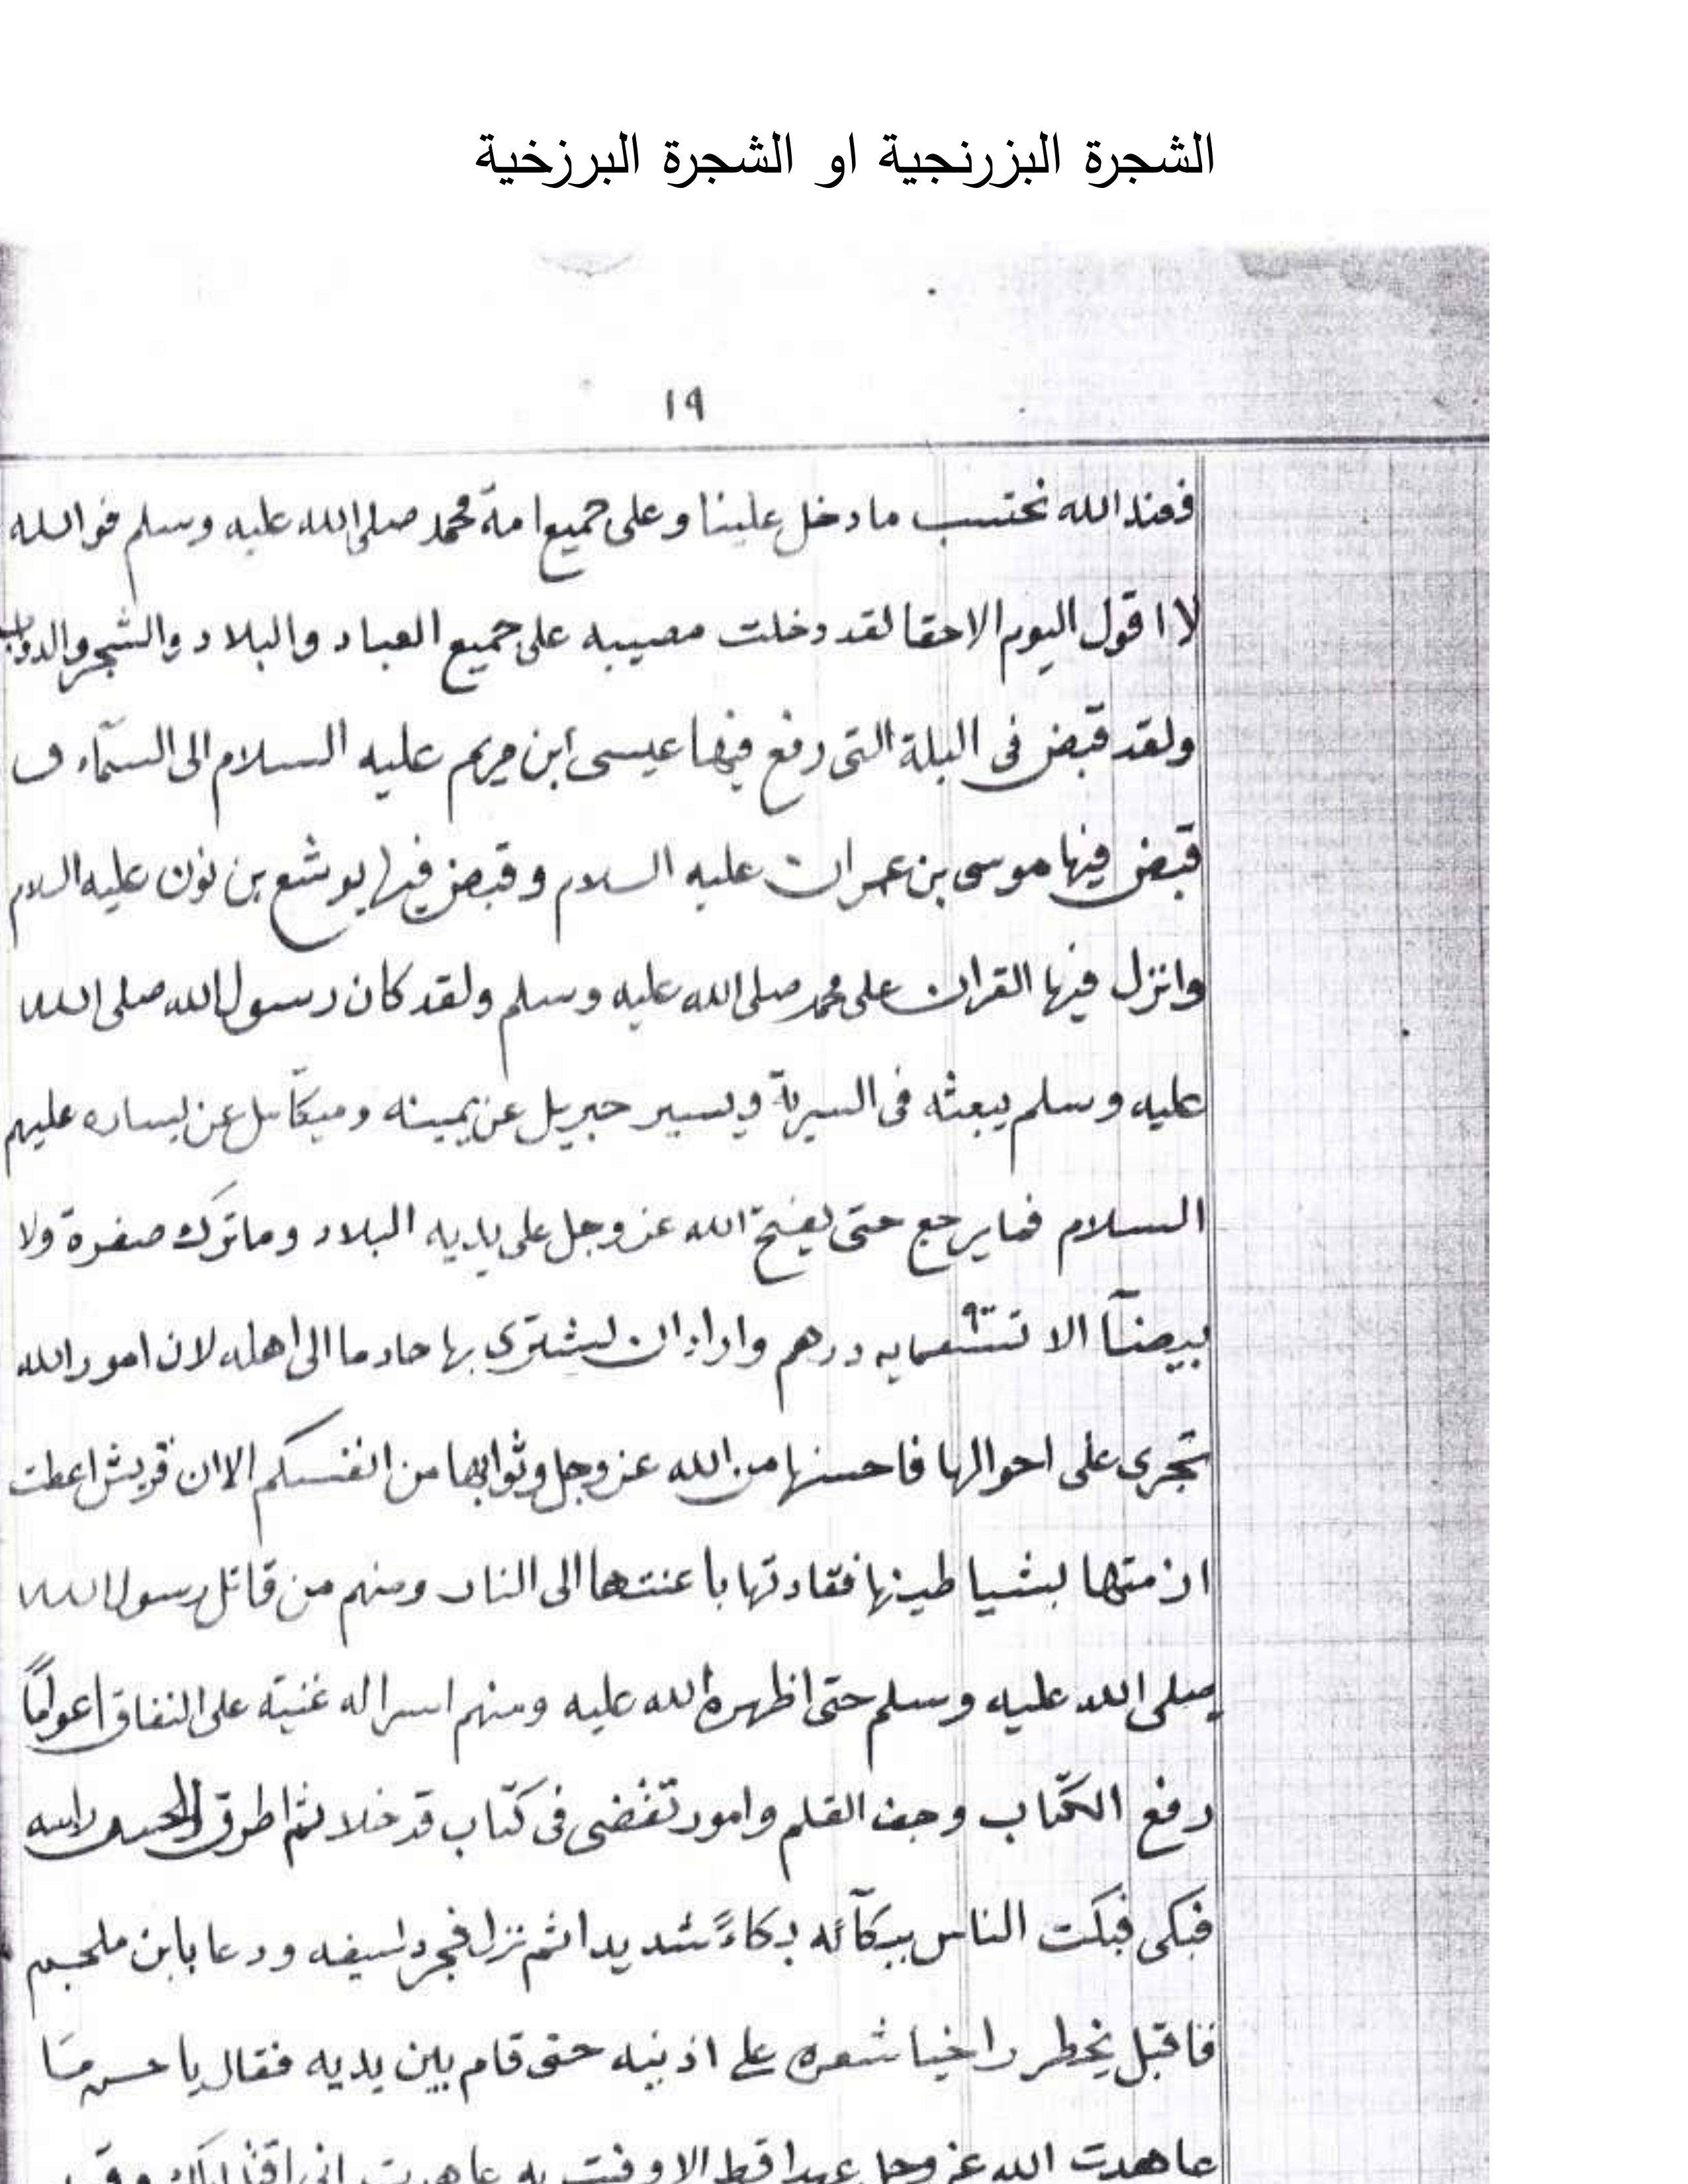 الشجرة البزرنجية او الشجرة البرزخية
١٩
فعند الله نحتسب ما دخل علينا وعلى جميع امة محمد صلى الله عليه وسلم فوالله
لا اقول اليوم الا حقا لقد دخلت مصيبه على جميع العباد والبلاد والشجر والدواب
ولقد قبض فى اليلة التى رفع فيها عيسى ابن مريم عليه السلام الى السمآء و
قبض فيها موسى بن عمران عليه السلام وقبض فيها يوشع بن نون عليه السلام
وانزل فيها القران على محمد صلى الله عليه وسلم ولقد كان رسول الله صلى الله
عليه وسلم يبعثه فى السرية ويسير جبريل عن يمينه وميكآئيل عن يساره عليهم
السلام فما يرجع حتى يفتح الله عز وجل على يديه البلاد وما ترك صفرة ولا
بيضآ الا درهم واراد ان يشترى بها خادما الى اهله لان امور الله
تجرى على احوالها فاحسنها من الله عز وجل وثوابها من انفسكم الا ان قريش اعطت
ازمتها لشياطينها فقادتها باعنتها الى النار ومنهم من قاتل رسول الله
صلى الله عليه وسلم حتى اظهره الله عليه ومنهم على النفاق
رفع الكتاب وجف القلم وامور تقضى فى كتاب قد خلا ثم اطرق الحسن راسه
فبكى فبكت الناس ببكآئه بكاءً شديدا ثم نزل فجرد سيفه ودعا بابن ملجم
فاقبل يخطر راخيا شعره على اذنيه حتى قام بين يديه فقال يا حسن ما
عاهدت الله عز وجل عهدا قط الا وفيت به عاهدت